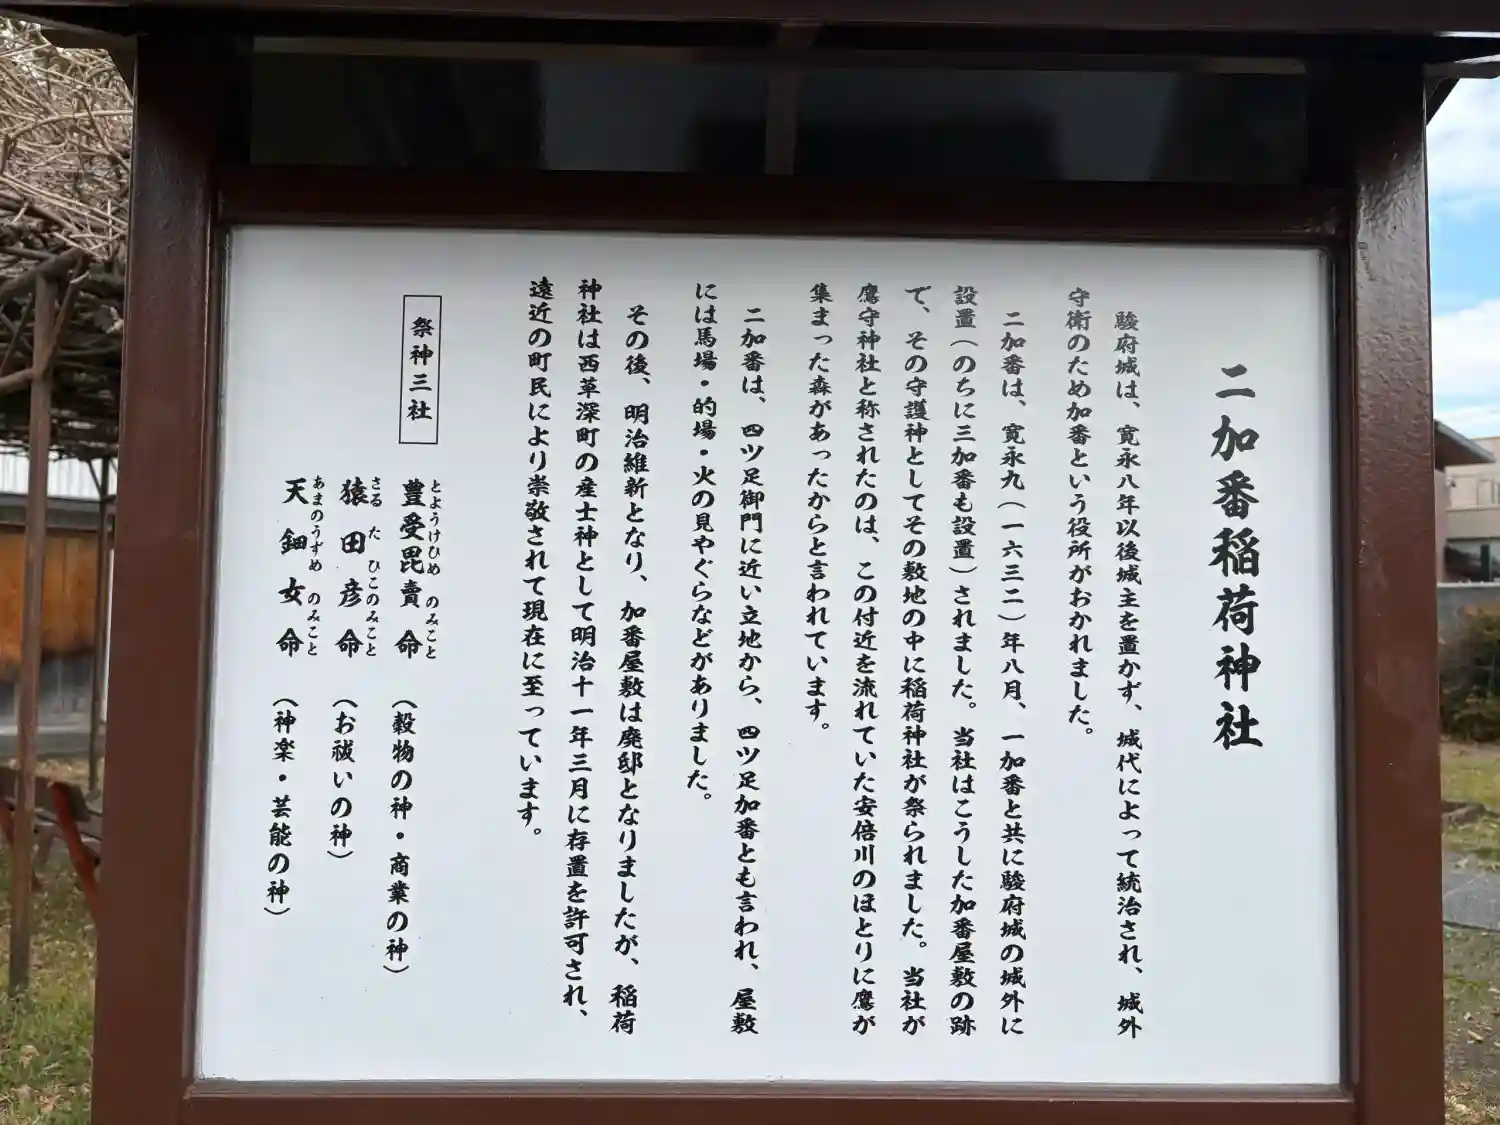 二加番稲荷神社
駿府城は、寛永八年以後城主を置かず、城代によって統治され、城外
守衛のため加番という役所がおかれました。
二加番は、寛永九(一六三二)年八月、一加番と共に駿府城の城外に
設置(のちに三加番も設置)されました。当社はこうした加番屋敷の跡
で、その守護神としてその敷地の中に稲荷神社が祭られました。当社が
鷹守神社と称されたのは、この付近を流れていた安倍川のほとりに鷹が
集まった森があったからと言われています。
二加番は、四ツ足御門に近い立地から、四ツ足加番とも言われ、屋敷
には馬場・的場・火の見やぐらなどがありました。
その後、明治維新となり、加番屋敷は廃邸となりましたが、稲荷
神社は西草深町の産土神として明治十一年三月に存置を許可され、
遠近の町民により崇敬されて現在に至っています。
祭神三社
豊受毘賣命 (穀物の神・商業の神)
とようけひめ のみこと
猿田彦命 (お祓いの神)
さる た ひこのみこと
天鈿女命 (神楽・芸能の神)
あまのうずめ のみこと